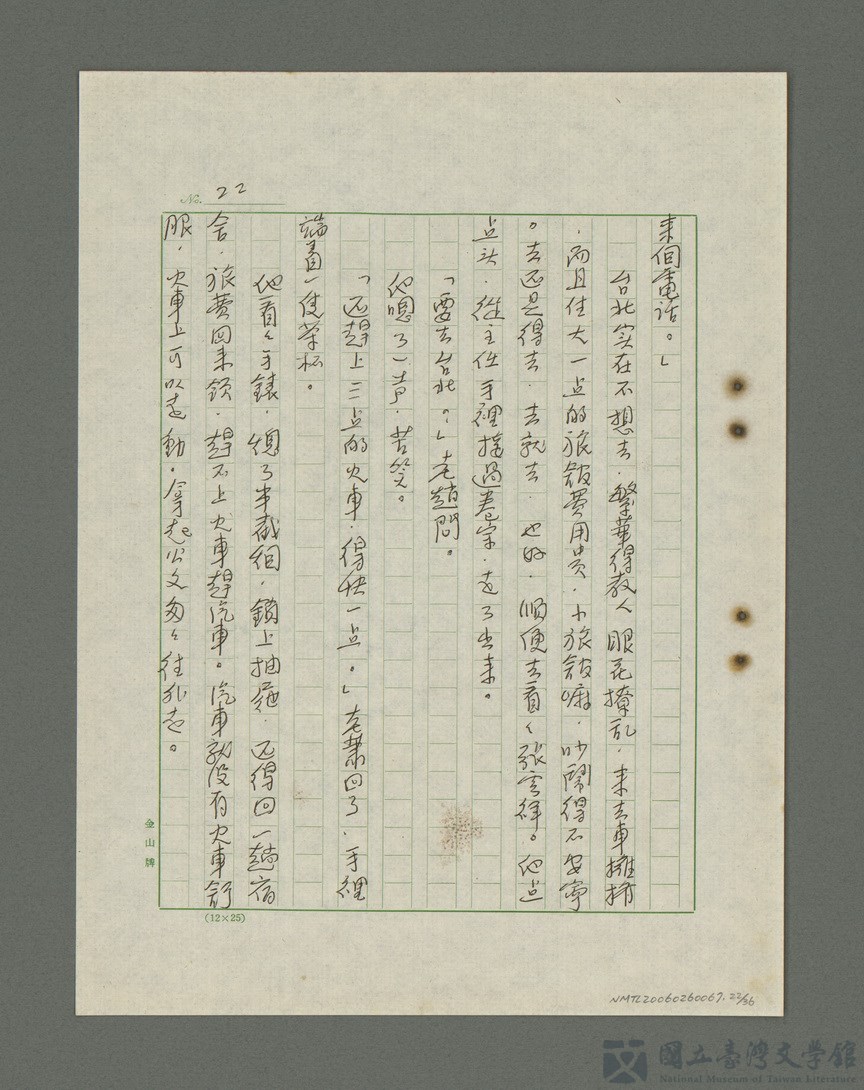 No. 22
来個電話。」
台北实在不想去，繁華得教人眼花撩乱，来去車擁挤
，而且住大一点的旅館費用贵，小旅館嘛，吵鬧得不安寧
。去还是得去，去就去，也好，順便去看々張雲祥。他点
点头，從主任手裡接過卷宗，走了出来。
「要去台北？」老趙問。
他嗯了一声，苦笑。
「还趕上三点的火車，得快一点。」老蕭回了，手裡
端着一隻茶杯。
他看々手錶，熄了半截烟，鎖上抽屜，还得回一趟宿
舍，旅费回来領，趕不上火車趕汽車。汽車就没有火車舒
服，火車上可以走動。拿起公文匆々往外走。
金山牌
(12×25)
NMTL20060260067.22/36
國立臺灣文學館
National Museum of Taiwan Literature